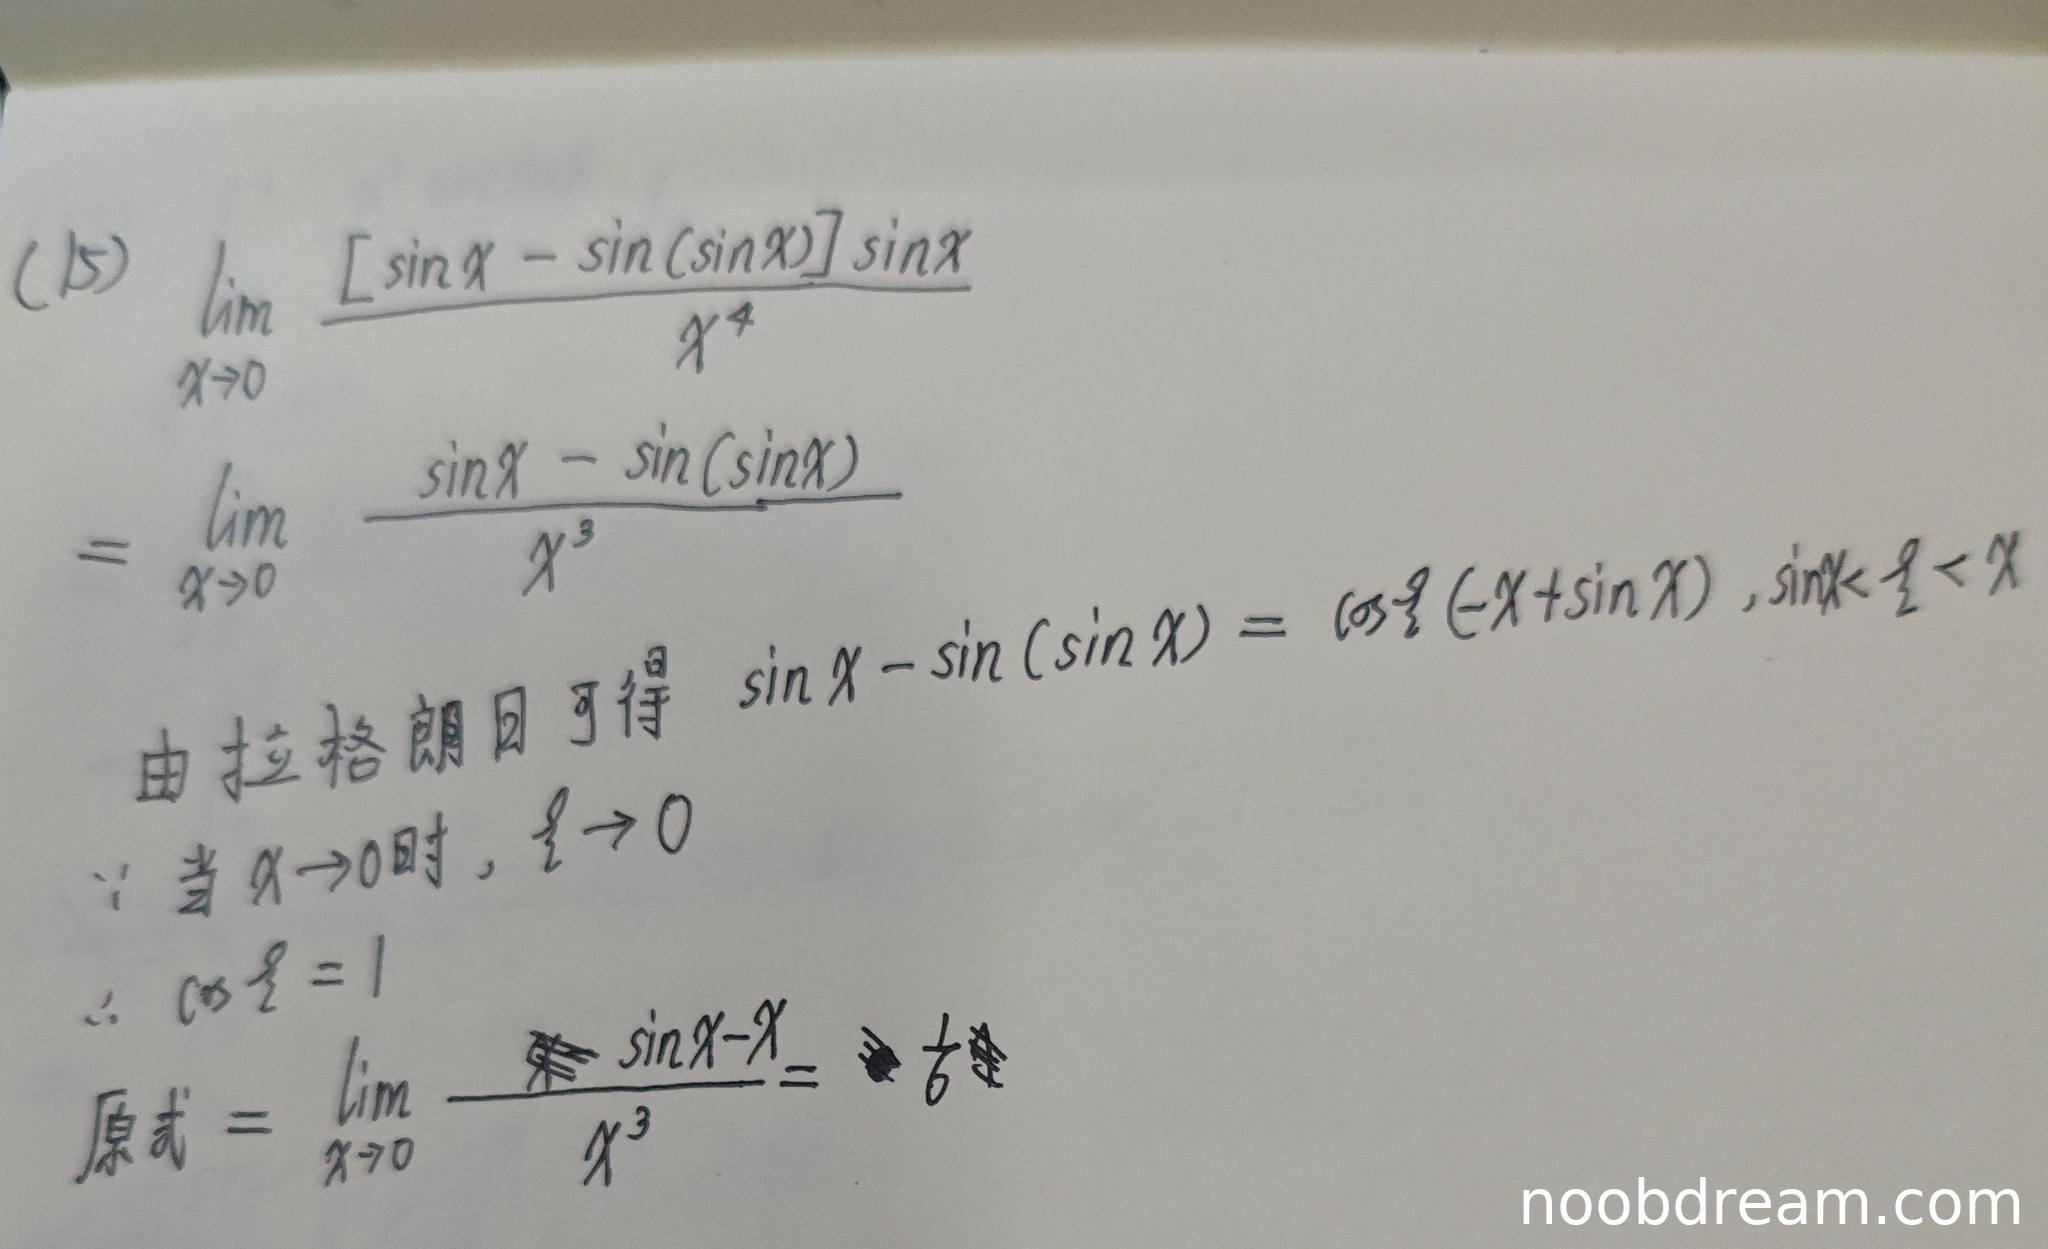 (15) lim x→0 [sin x − sin(sin x)] sin x / x⁴
= lim x→0 sin x − sin(sin x) / x³
由拉格朗日可得 sin x − sin(sin x) = cos ξ (−x + sin x), sin x < ξ < x
∵ 当 x→0时, ξ→0
∴ cos ξ = 1
原式 = lim x→0 sin x − x / x³ = 1/6
noobdream.com